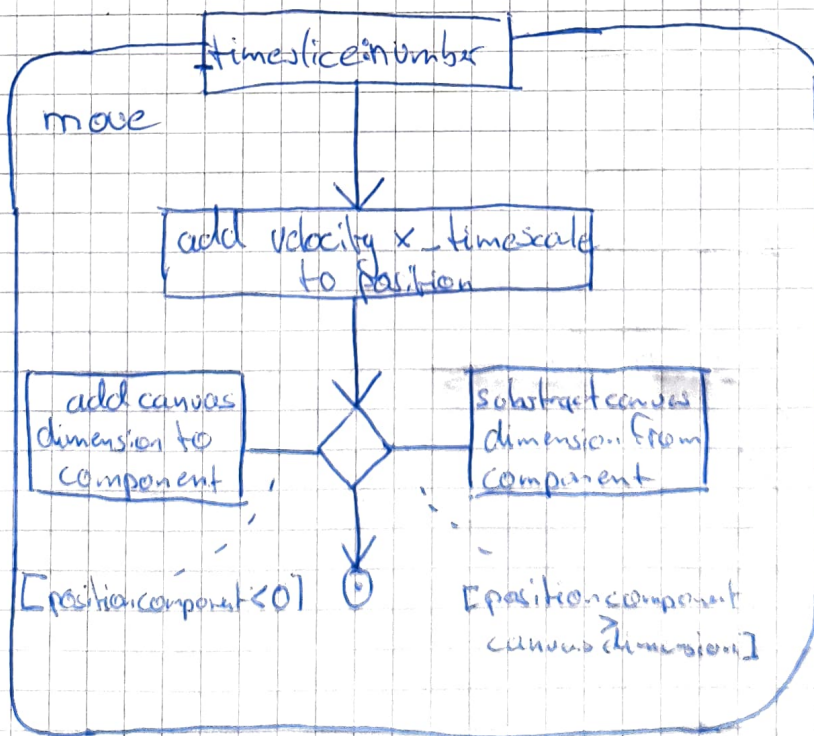 timeslice:number
move
add velocity x_timescale
to position
add canvas
dimension to
component
substract canvas
dimension from
component
[position.component<0]
[position.component
>
canvas dimension]